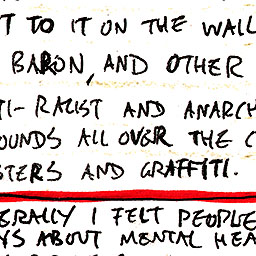 T TO IT ON THE WALL
BARON, AND OTHER
TI-RACIST AND ANARCH
OUNDS ALL OVER THE C
STERS AND GRAFFITI.
ERALLY I FELT PEOPLE
YS ABOUT MENTAL HEA